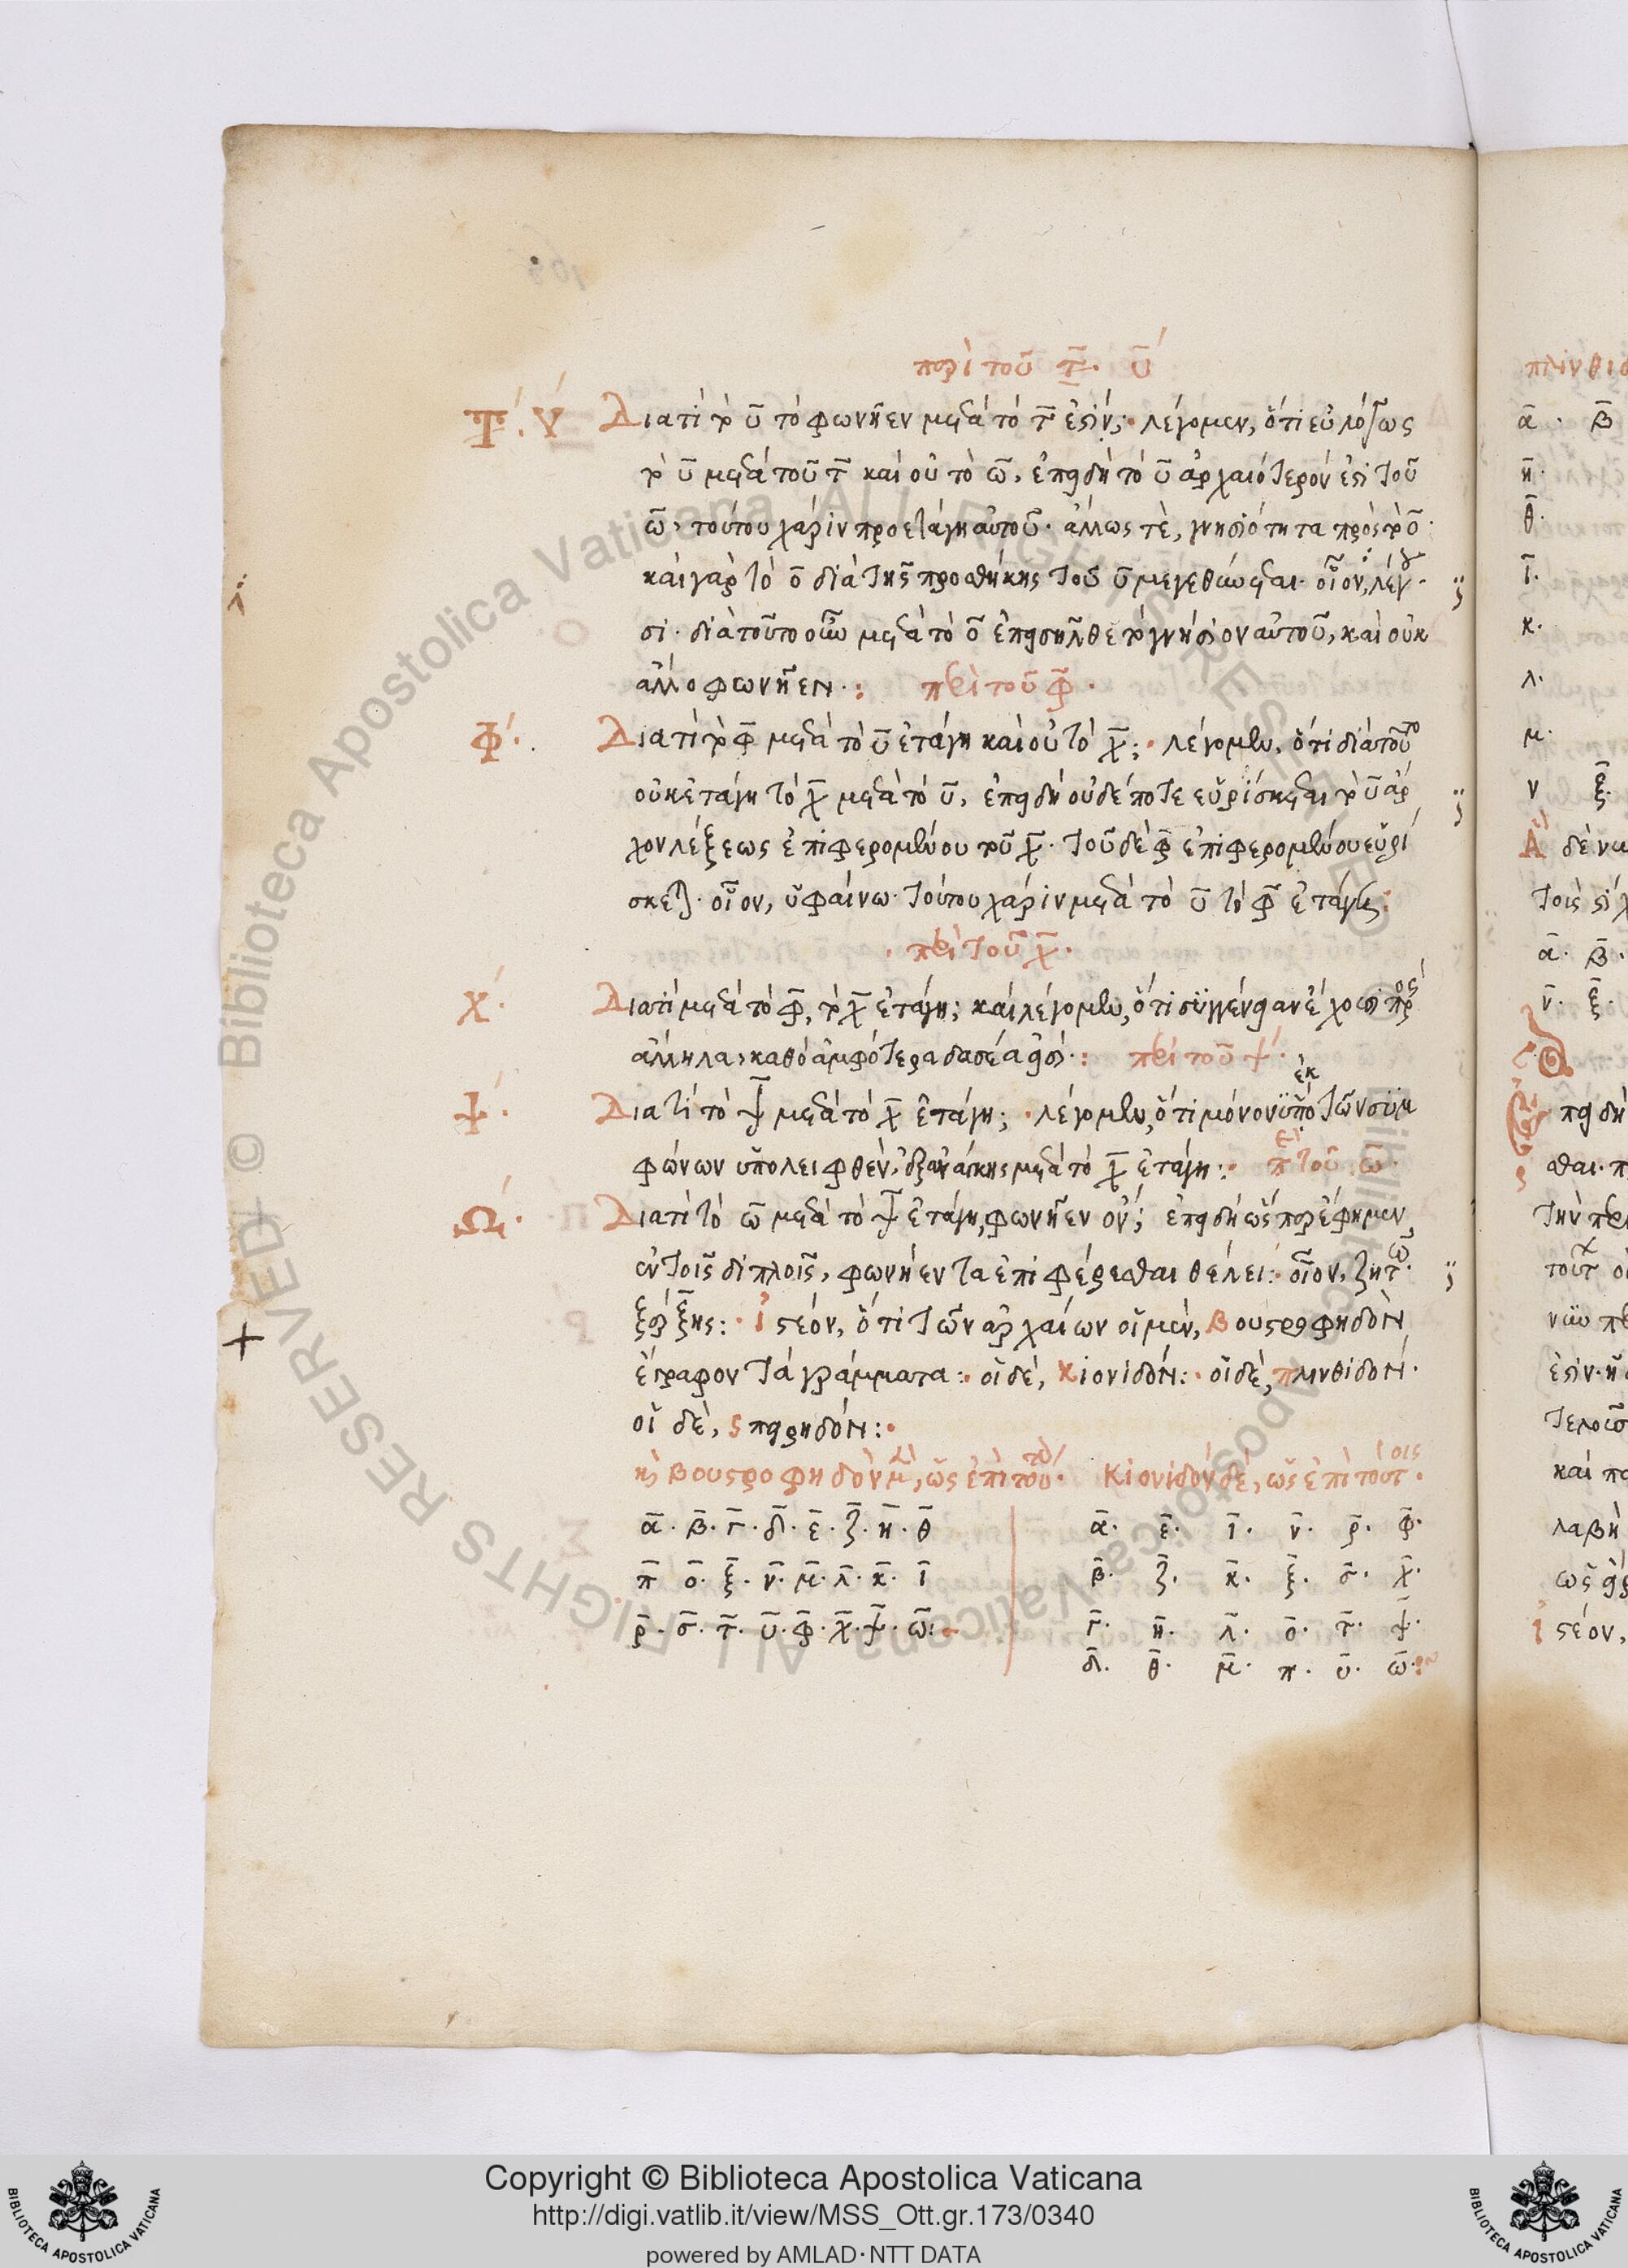 περὶ τοῦ τ̅. υ̅
Τ. Υ Διατί τὸ υ̅ τὸ φωνῆεν μετὰ τὸ τ̅ ἐστίν; λέγομεν, ὅτι εὐλόγως
τὸ υ̅ μετὰ τοῦ τ̅ καὶ οὐ τὸ ω̅, ἐπειδὴ τὸ υ̅ ἀρχαιότερόν ἐστι τοῦ
ω̅, τούτου χάριν προετάγη αὐτοῦ. ἄλλως τὲ, γνησιότητα πρὸς τὸ ο̅.
καὶ γὰρ τὸ ο̅ διὰ τῆς προσθήκης τοῦ υ̅ μεγεθύνεται. οἷον, λέγου
σι. διὰ τοῦτο οὖν μετὰ τὸ ο̅ ἐπεισῆλθε τὸ γνήσιον αὐτοῦ, καὶ οὐκ
ἄλλο φωνῆεν.: περὶ τοῦ φ̅.
Φ. Διατί τὸ φ̅ μετὰ τὸ υ̅ ἐτάγη καὶ οὐ τὸ χ̅; λέγομεν, ὅτι διὰ τοῦτο
οὐκ ἐτάγη τὸ χ̅ μετὰ τὸ υ̅, ἐπειδὴ οὐδέποτε εὑρίσκεται τὸ υ̅ ἄρ
χον λέξεως ἐπιφερομένου τοῦ χ̅. τοῦ δὲ φ̅ ἐπιφερομένου εὑρί
σκεται. οἷον, ὑφαίνω. τούτου χάριν μετὰ τὸ υ̅ τὸ φ̅ ἐτάγη:
περὶ τοῦ χ̅.
Χ. Διατί μετὰ τὸ φ̅, τὸ χ̅ ἐτάγη; καὶ λέγομεν, ὅτι συγγένειαν ἔχουσι πρὸς
ἄλληλα, καθὸ ἀμφότερα δασέα εἰσί.: περὶ τοῦ ψ.
Ψ. Διατί τὸ ψ̅ μετὰ τὸ χ̅ ἐτάγη; λέγομεν, ὅτι μόνον ὑπὸ ἐκ τῶν συμ
φώνων ὑπολειφθὲν, ἐξανάγκης μετὰ τὸ χ̅ ἐτάγη: περὶ τοῦ ω̅.
Ω. Διατί τὸ ω̅ μετὰ τὸ ψ̅ ἐτάγη, φωνῆεν ὄν; ἐπειδὴ ὡς προέφημεν,
ἐν τοῖς διπλοῖς, φωνήεντα ἐπιφέρεσθαι θέλει: οἷον, ζητῶ.
ξέρξης: ἰστέον, ὅτι τῶν ἀρχαίων οἱ μὲν, βουστροφηδὸν
ἔγραφον τὰ γράμματα: οἱ δὲ, κιονιδόν: οἱ δὲ, πλινθιδόν.
οἱ δὲ, σπειρηδόν:
καὶ βουστροφηδὸν μὲν, ὡς ἐπὶ τούτου. κιονιδὸν δὲ, ὡς ἐπὶ τούτοις.
α̅. β̅. γ̅. δ̅. ε̅. ζ̅. η̅. θ̅ α̅. ε̅. ι̅. ν̅. ρ̅. φ̅.
π̅ ο̅. ξ̅. ν̅. μ̅. λ̅. κ̅. ι̅ β̅. ζ̅. κ̅. ξ̅. σ̅. χ̅.
ρ̅. σ̅. τ̅. υ̅. φ̅. χ̅. ψ̅. ω̅: γ̅. η̅. λ̅. ο̅. τ̅. ψ̅.
δ̅. θ̅. μ̅. π. υ̅. ω̅:
Copyright © Biblioteca Apostolica Vaticana
http://digi.vatlib.it/view/MSS_Ott.gr.173/0340
powered by AMLAD·NTT DATA